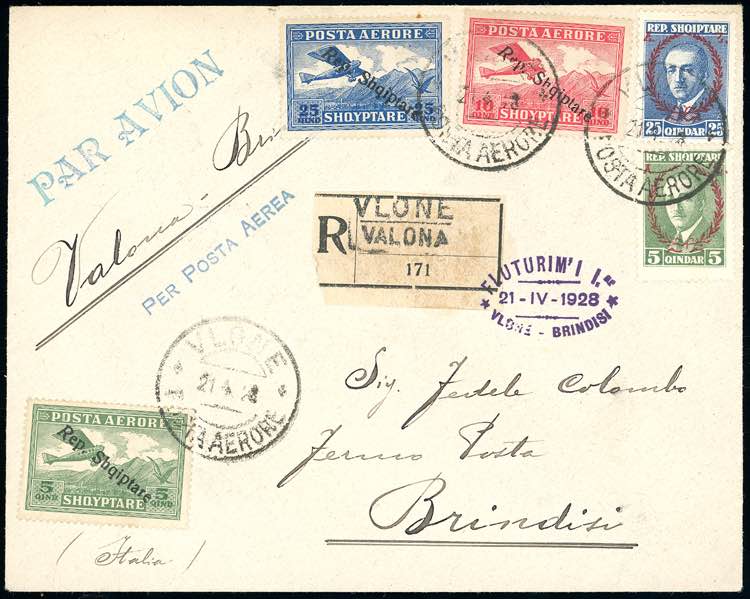 PAR AVION
POSTA AERORE
25 25
QIND QIND
SHQYPTARE
Rep. Shqiptare
POSTA AERORE
10 10
QIND QIND
SHQYPTARE
Rep. Shqiptare
REP. SHQIPTARE
25 QINDAR 25
5 QINDAR 5
POSTA AERORE
POSTA AERORE
Valona - Brin
PER POSTA AEREA
R
VLONE
VALONA
171
FLUTURIM'I I.er
21-IV-1928
VLONE - BRINDISI
VLONE
21.4.28
POSTA AERORE
Sig. Fedele Colombo
Fermo Posta
Brindisi
(Italia)
POSTA AERORE
5 5
QIND QIND
SHQYPTARE
Rep. Shqiptare